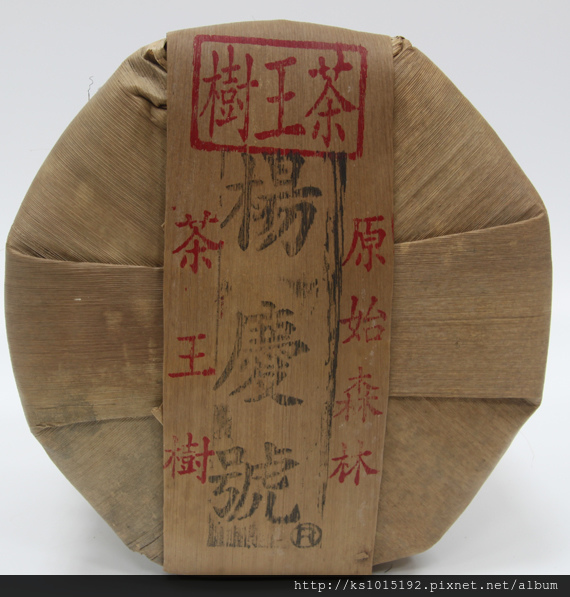 茶王樹
原始森林
楊慶號
R
茶王樹
http://ks1015192.pixnet.net/album